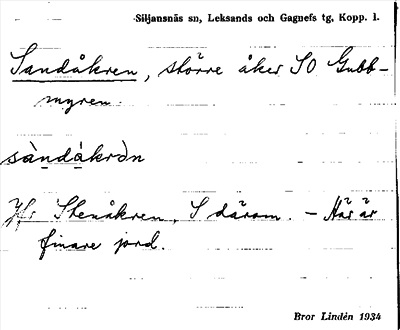 Siljansnäs sn, Leksands och Gagnefs tg, Kopp. l.
Sandåkren, större åker SO Gubb-
myren.
sàndåkrən
Jfr Stenåkren, S därom. – Här är
finare jord.
Bror Lindén 1934